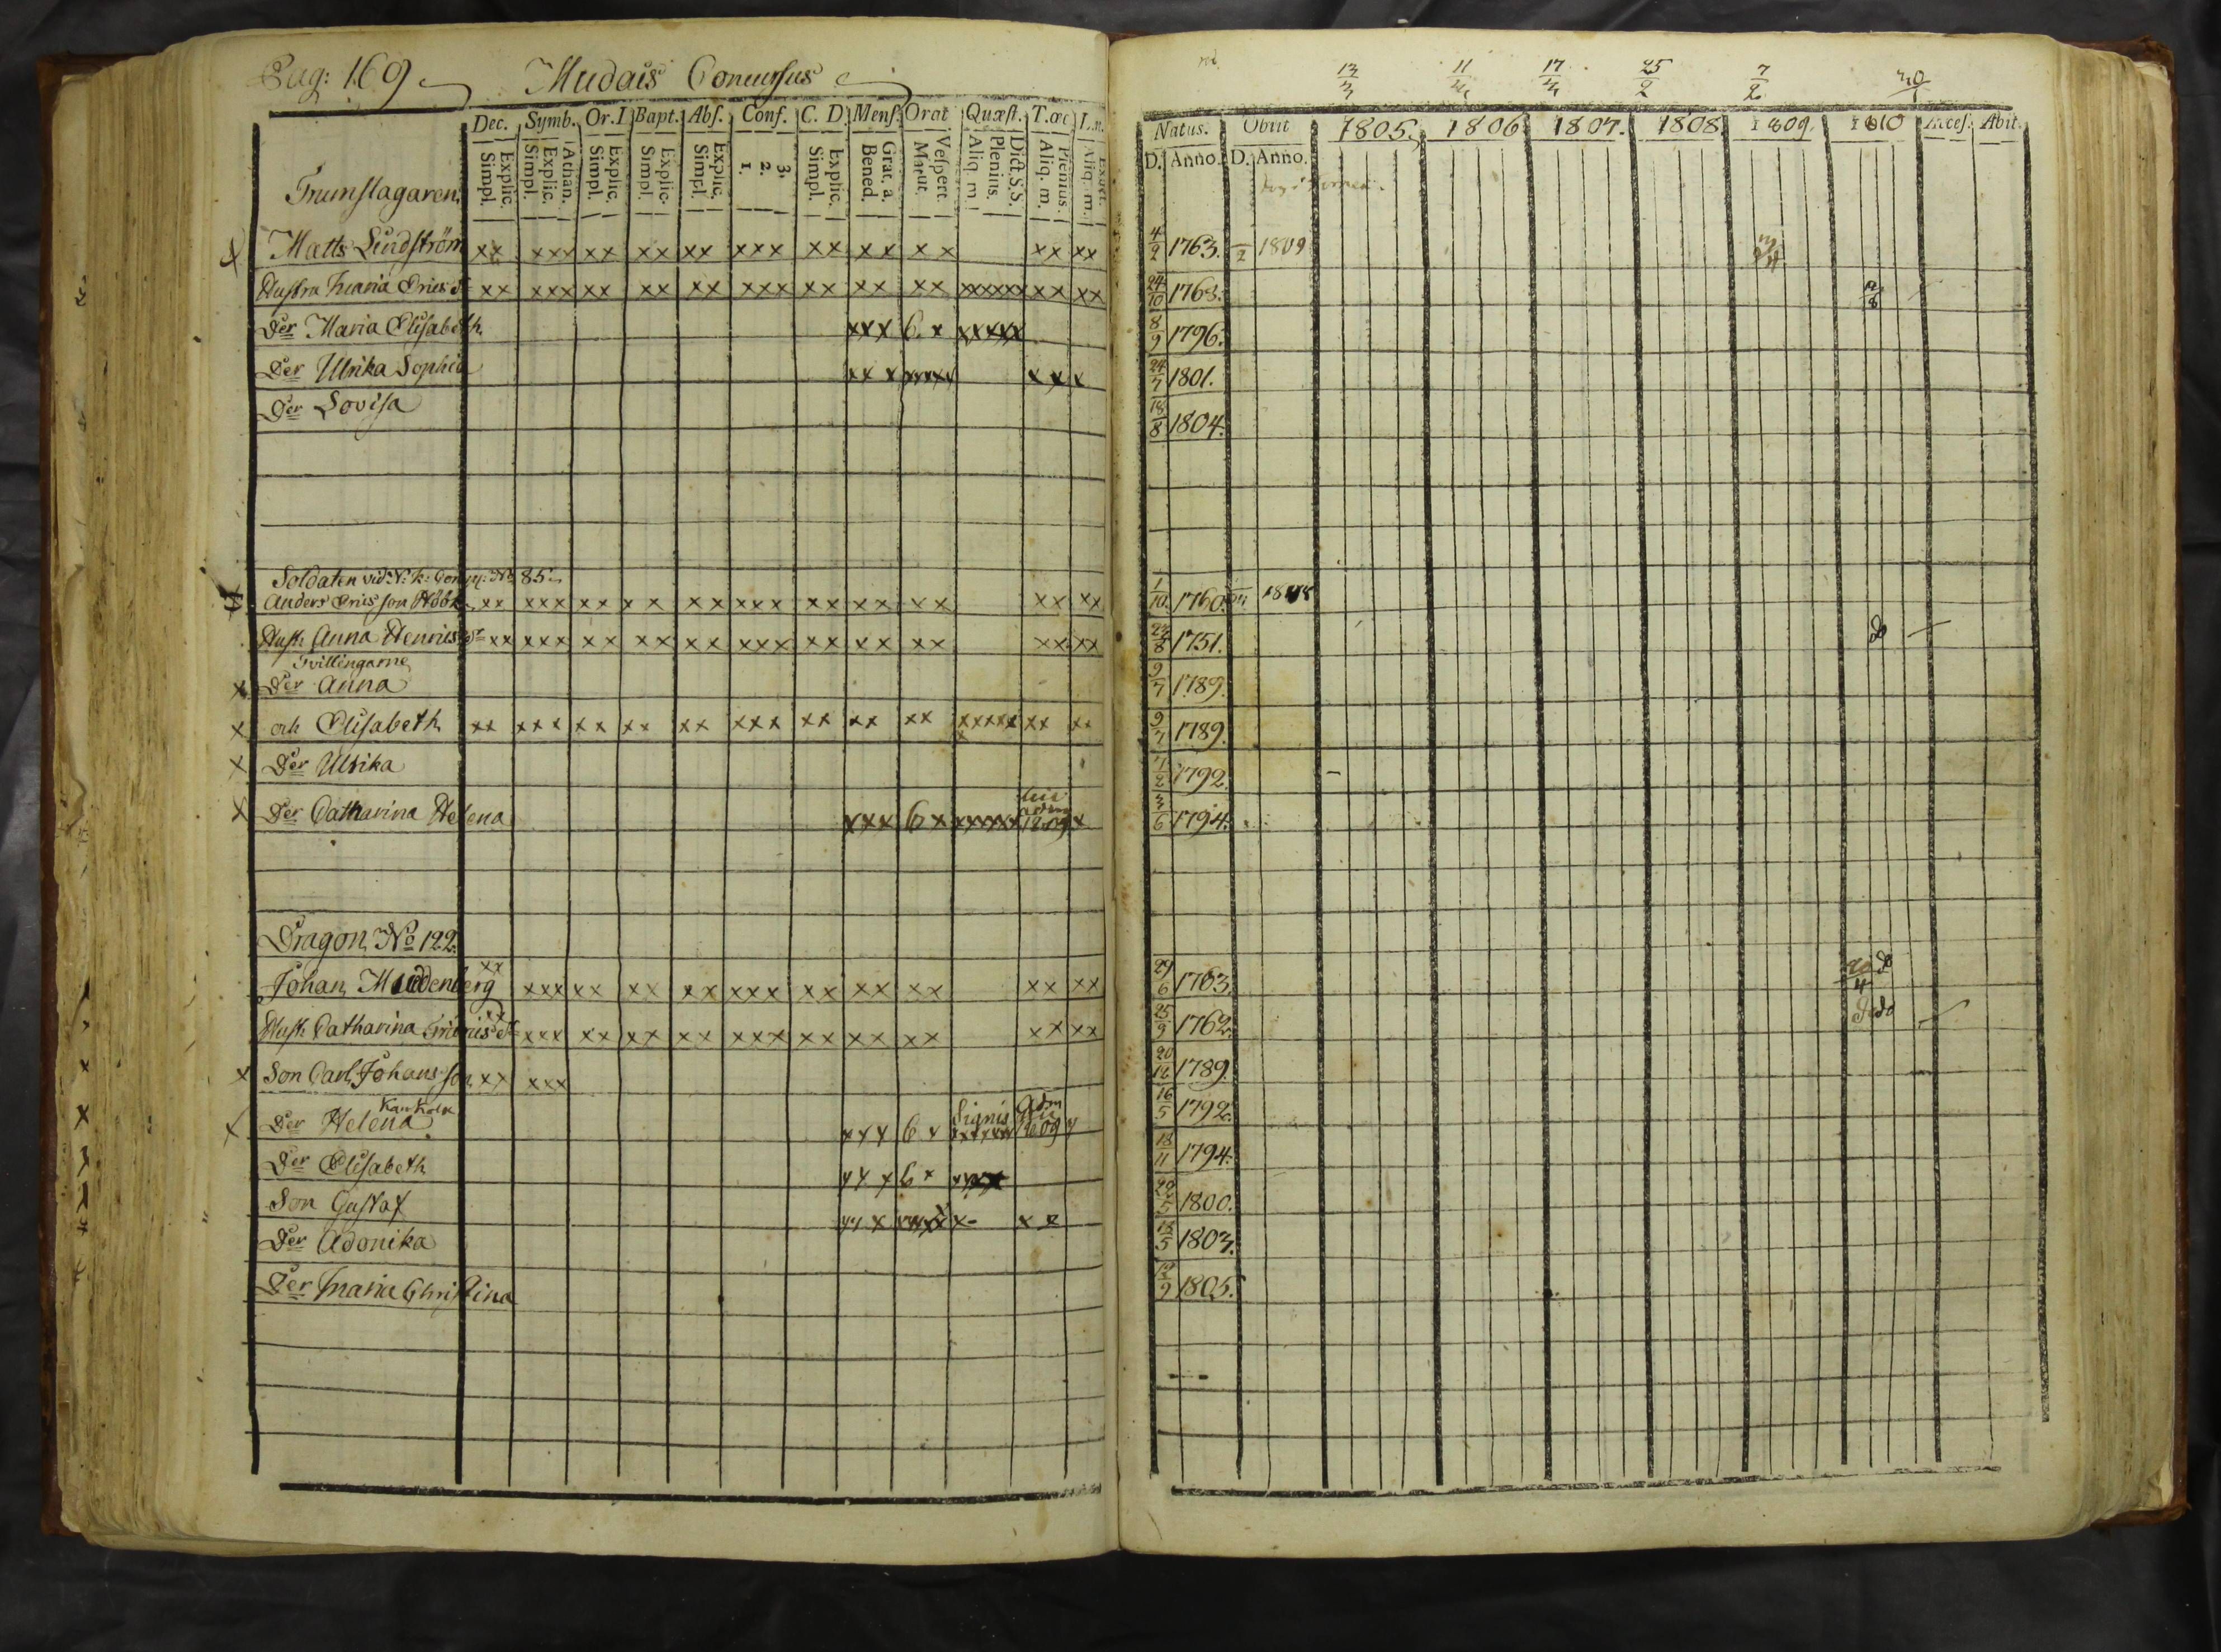 Pag: 169 Mudais Concursus
Dec. Symb. Or. D Bapt. Abs. Conf. C. D. Mens. Orat Quæst. T. œc
Explic. Simpl. Athan. Explic. Simpl. Explic. Simpl. Explic. Simpl. Explic. Simpl. 3. 2. 1. Explic. Simpl. Grat. a. Bened. Vespert. Matut. Dict. S.S. Plenius. Aliq. m. Plenius. Aliq. m. Aliq. m.
Trumslagaren
x Matts Lindström xx xxx xx xx xx xxx xx xx xx xx xx
Hustru Maria Ericsdr xx xxx xx xx xx xxx xx xx xx xxxxxx xx xx
Der Maria Elisabeth xxx 6 x xxxxx
Der Ulrika Sophia xx x xxxxx x x x
Der Lovisa
Soldaten vid N: k: Comp: No 85
Anders Ericsson xx xxx xx xx xx xxx xx xx xx xx xx
Hust: Anna Henricsdr xx xxx xx xx xx xxx xx xx xx xx xx
Tvillingarne
x Der Anna
x och Elisabeth xx xxx xx xx xx xxx xx xx xx xxxxxx xx xx
x Der Ulrika
x Der Catharina Helena xxx 6 x xxxxxx 1809 x
Dragon No 122
Johan Muddenberg xx xxx xx xx xx xxx xx xx xx xx xx
Hust: Catharina xx xxx xx xx xx xxx xx xx xx xx xx
x Son Carl Johansson xx xxx
x Der Helena xxx 6 x xxxxxx Adm 1809 x
Der Elisabeth xx x 6 x xxxx
Son Gustaf xx x xxxxx x- x x
Der Adonika
Der Maria Christina
13/3 11/3 17/3 25/2 7/2 30/1
Natus. Obiit 1805. 1806. 1807. 1808. 1809. 1810 Acces. Abit.
D. Anno. D. Anno.
4/2 1763. -/2 1809
24/10 1768.
8/9 1796.
24/7 1801.
18/8 1804.
1/10 1760. 1808
22/8 1751. do
9/7 1789.
9/7 1789.
7/2 1792.
3/6 1794.
29/6 1763. do
25/9 1762.
20/12 1789.
16/5 1792.
18/11 1794.
29/5 1800.
18/5 1803.
12/9 1805.